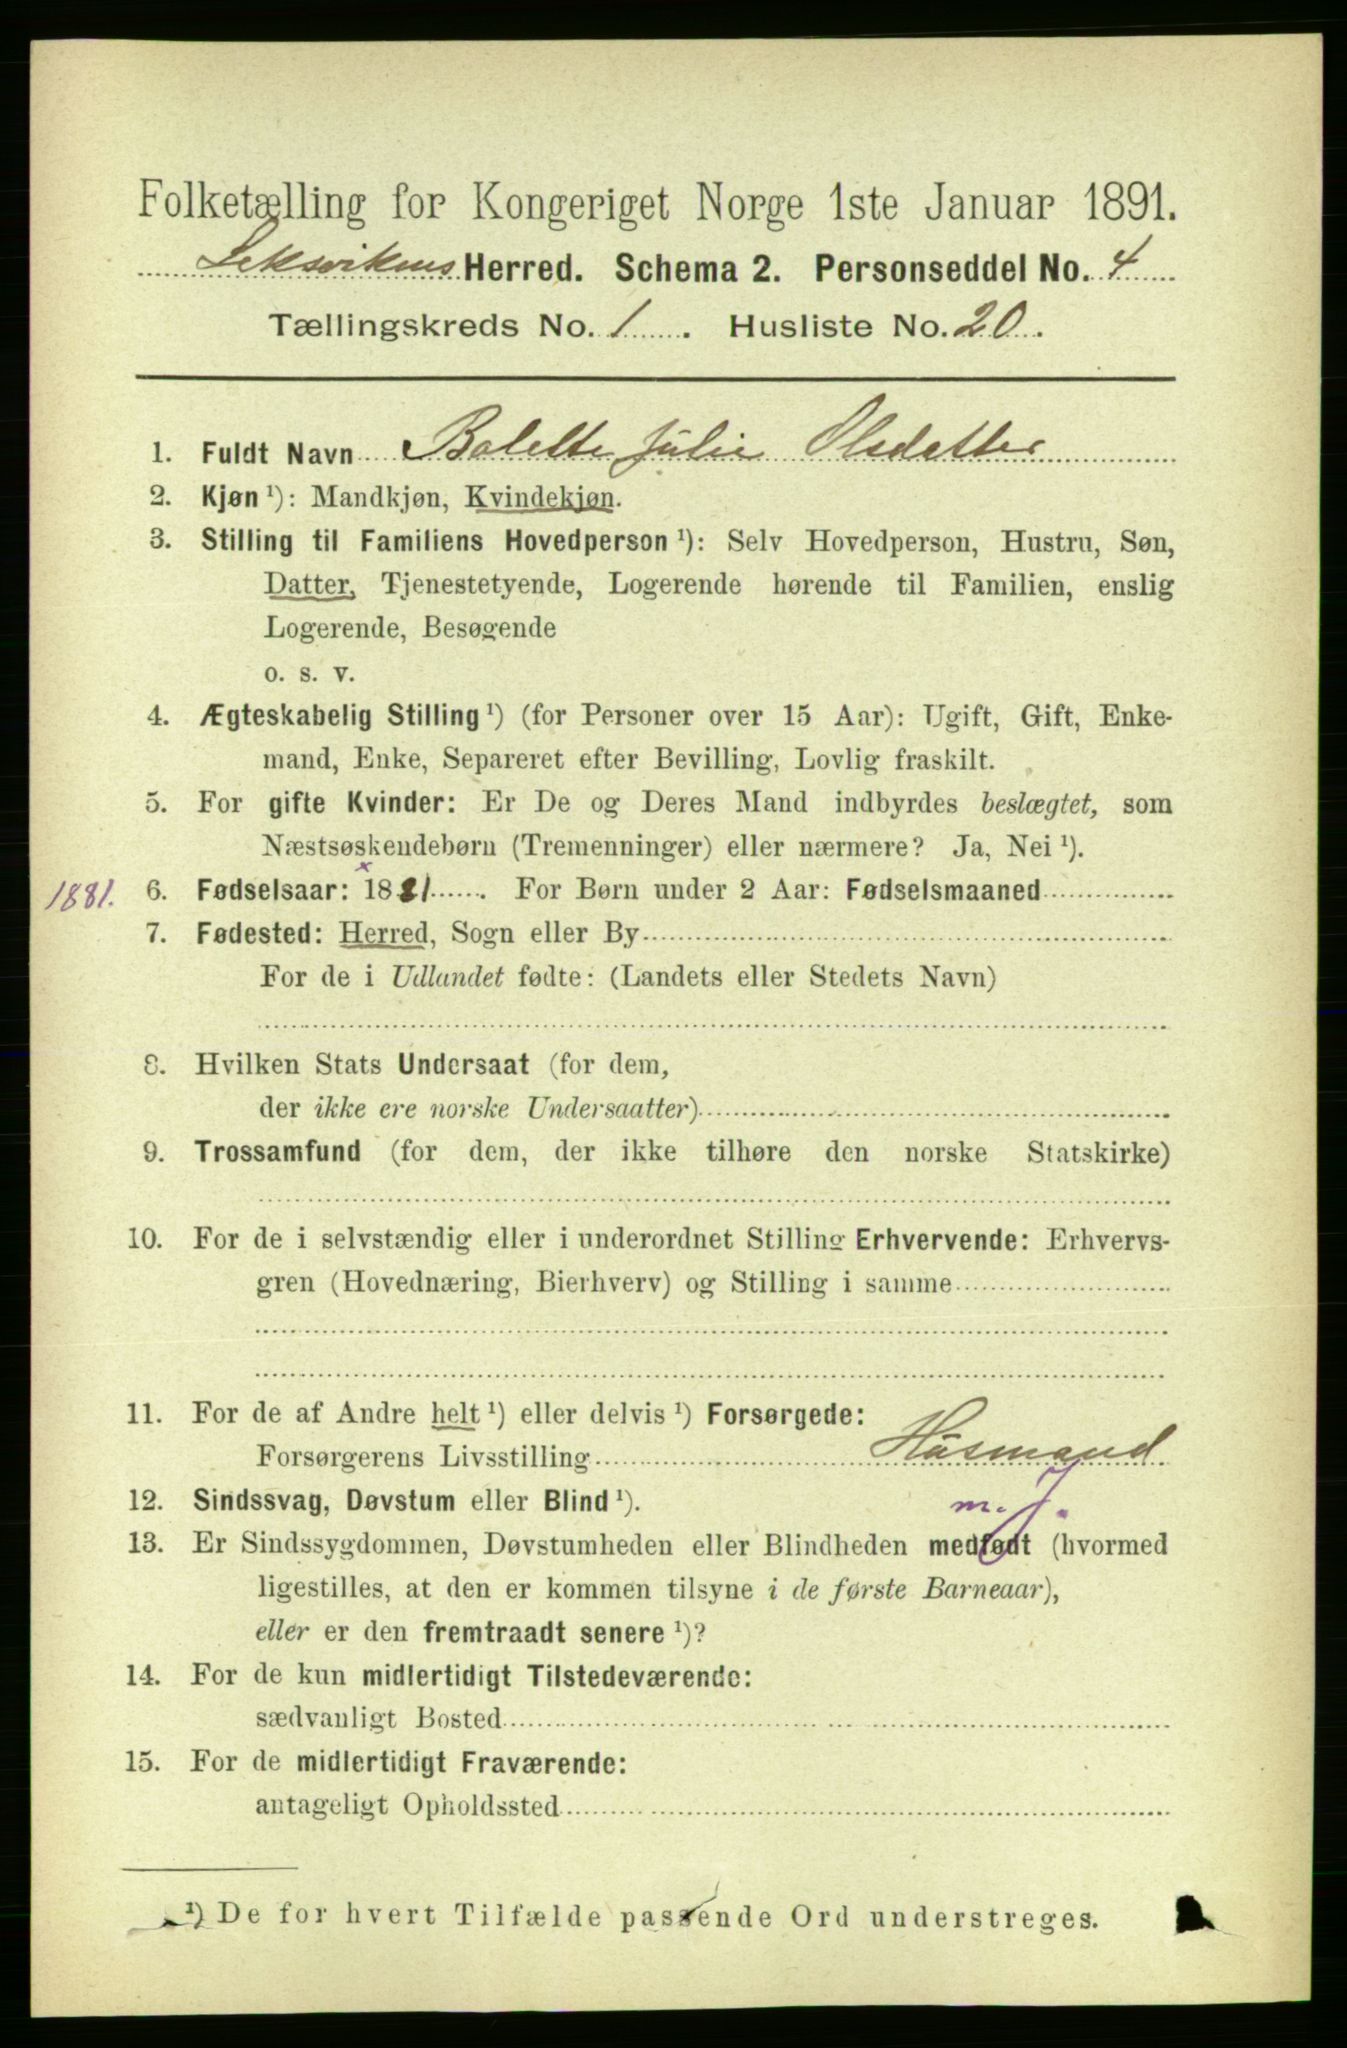 Folketælling for Kongeriget Norge 1ste Januar 1891.
Leksvikens Herred. Schema 2. Personseddel No. 4
Tællingskreds No. 1. Husliste No. 20.
1. Fuldt Navn Bolette Julie Olsdatter
2. Kjøn ¹): Mandkjøn, Kvindekjøn.
3. Stilling til Familiens Hovedperson ¹): Selv Hovedperson, Hustru, Søn,
Datter, Tjenestetyende, Logerende hørende til Familien, enslig
Logerende, Besøgende
o. s. v.
4. Ægteskabelig Stilling ¹) (for Personer over 15 Aar): Ugift, Gift, Enke-
mand, Enke, Separeret efter Bevilling, Lovlig fraskilt.
5. For gifte Kvinder: Er De og Deres Mand indbyrdes beslægtet, som
Næstsøskendebørn (Tremenninger) eller nærmere? Ja, Nei ¹).
1881. 6. Fødselsaar: x 1881. For Børn under 2 Aar: Fødselsmaaned
7. Fødested: Herred, Sogn eller By
For de i Udlandet fødte: (Landets eller Stedets Navn)
8. Hvilken Stats Undersaat (for dem,
der ikke ere norske Undersaatter)
9. Trossamfund (for dem, der ikke tilhøre den norske Statskirke)
10. For de i selvstændig eller i underordnet Stilling Erhvervende: Erhvervs-
gren (Hovednæring, Bierhverv) og Stilling i samme
11. For de af Andre helt ¹) eller delvis ¹) Forsørgede:
Forsørgerens Livsstilling Húsmand
12. Sindssvag, Døvstum eller Blind ¹). m. J.
13. Er Sindssygdommen, Døvstumheden eller Blindheden medfødt (hvormed
ligestilles, at den er kommen tilsyne i de første Barneaar),
eller er den fremtraadt senere ¹)?
14. For de kun midlertidigt Tilstedeværende:
sædvanligt Bosted
15. For de midlertidigt Fraværende:
antageligt Opholdssted
¹) De for hvert Tilfælde passende Ord understreges.